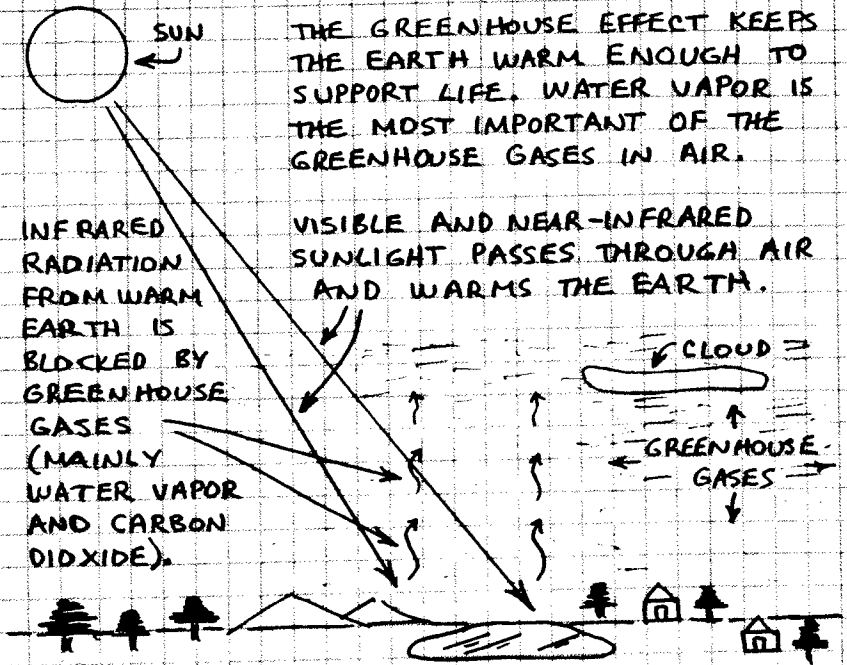 SUN
THE GREENHOUSE EFFECT KEEPS
THE EARTH WARM ENOUGH TO
SUPPORT LIFE. WATER VAPOR IS
THE MOST IMPORTANT OF THE
GREENHOUSE GASES IN AIR.
VISIBLE AND NEAR-INFRARED
SUNLIGHT PASSES THROUGH AIR
AND WARMS THE EARTH.
INFRARED
RADIATION
FROM WARM
EARTH IS
BLOCKED BY
GREENHOUSE
GASES
(MAINLY
WATER VAPOR
AND CARBON
DIOXIDE).
CLOUD
GREENHOUSE
GASES